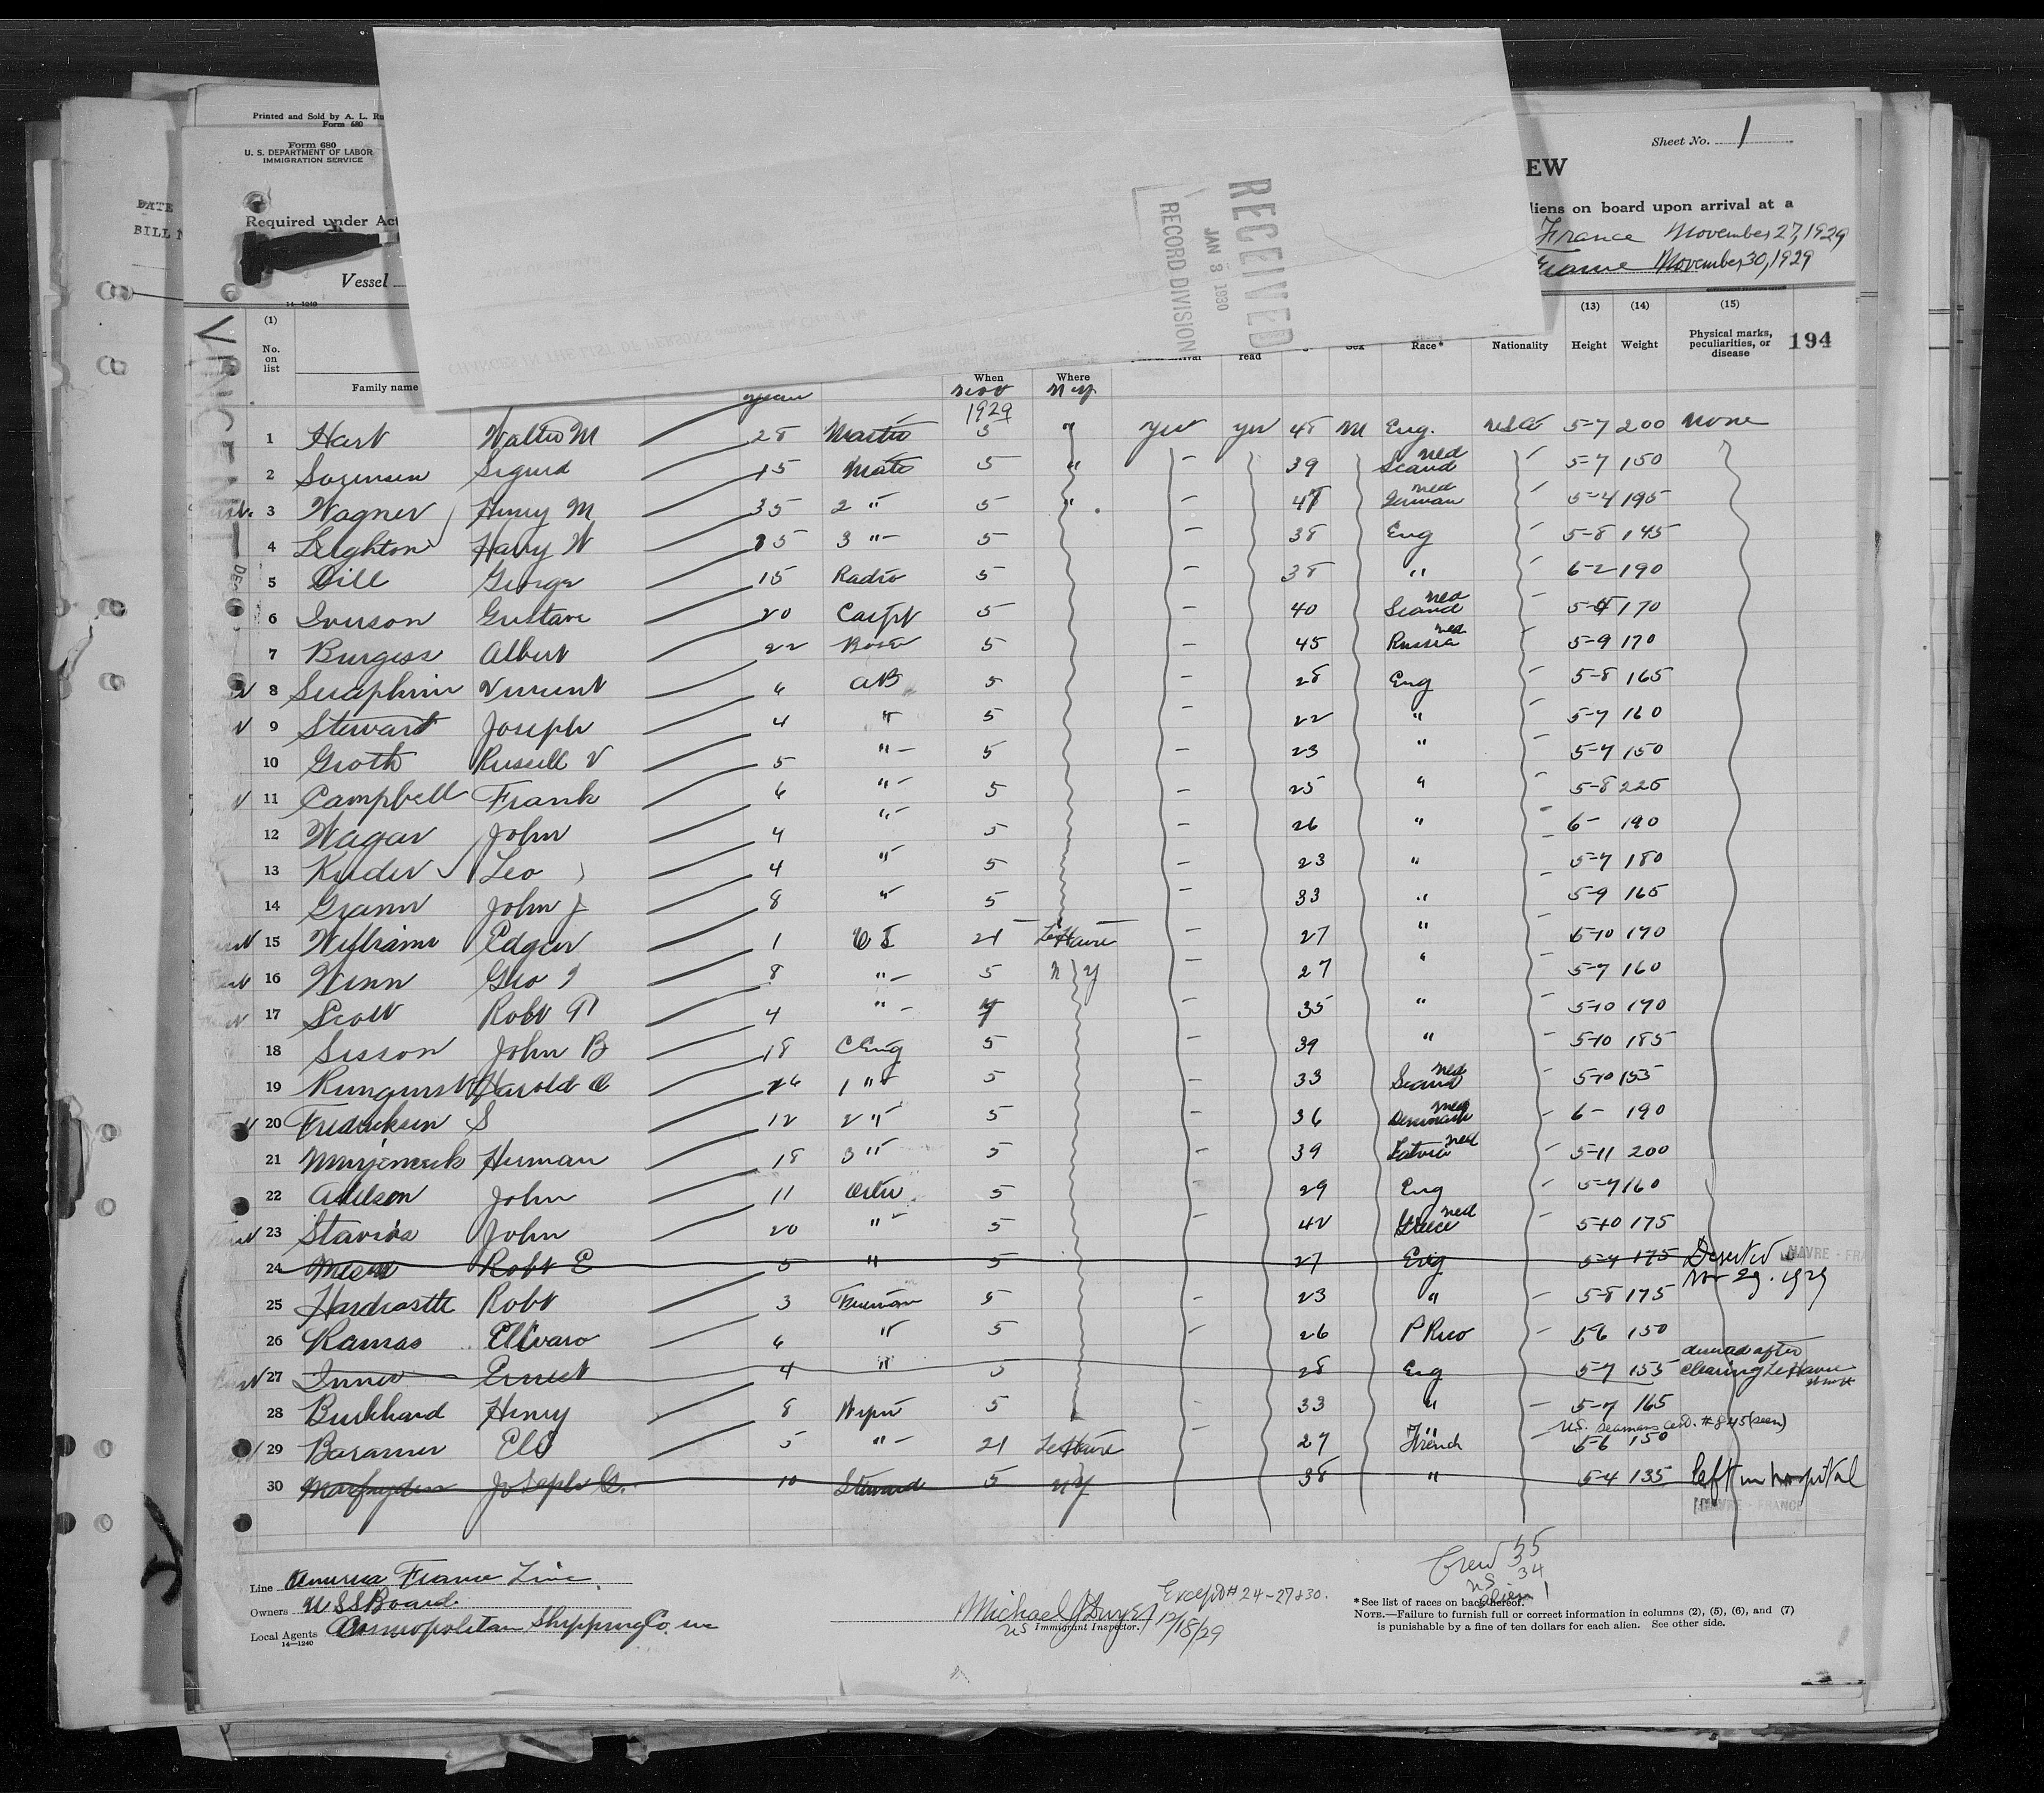 Printed and Sold by A. L. Ru
Form 680
Form 680
U. S. DEPARTMENT OF LABOR
IMMIGRATION SERVICE
Sheet No. 1
EW
DATE
BILL N
Required under Act
liens on board upon arrival at a
France November 27, 1929
France November 30, 1929
Vessel
14—1240
RECEIVED
JAN 8 1930
RECORD DIVISION
VINCENT
(1) (13) (14) (15)
No. on list
Family name
When
Where
read
Sex
Race*
Nationality
Height
Weight
Physical marks, peculiarities, or disease
194
years Nov 1929 N Y
1 Hart Walter M 28 Master 5 " yes yes 48 M Eng. USA 5-7 200 none
2 Sorensen Sigurd 15 Mate 5 " 39 Scand ned 5-7 150
3 Wagner Henry M 35 2 " 5 " German ned 5-4 195
4 Leighton Harry W 3 " 5 38 Eng 5-8 145
5 Dill George 15 Radio 5 38 " 6-2 190
6 Iverson Gustave 20 Carpt 5 40 Scand ned 170
7 Burgess Albert 22 Bosn 5 45 Russia ned 5-9 170
8 Seraphim Vincent 6 AB 5 28 Eng 5-8 165
9 Stewart Joseph 4 " 5 22 " 5-7 160
10 Groth Russell V 5 " 5 23 " 5-7 150
11 Campbell Frank 6 " 5 25 " 5-8 225
12 Wagar John 4 " 5 26 " 6- 190
13 Kuder Leo 4 " 5 23 " 5-7 180
14 Grann John J 8 " 5 33 " 5-9 165
15 Williams Edgar 1 21 Le Havre 27 " 5-10 170
16 Winn Geo 8 " 5 N Y 27 " 5-7 160
17 Scott Robt 4 " 35 " 5-10 170
18 Sisson John B 18 C Eng 5 39 " 5-10 185
19 Harold O 1 " 5 33 Scand ned 5-10 155
20 Fredriksen S 12 2 " 5 36 Denmark ned 6- 190
21 Herman 18 3 " 5 39 Latvia ned 5-11 200
22 Adelson John 11 Oiler 5 29 Eng 5-7 160
23 Stavros John 20 " 5 42 Greece ned 5-10 175
24 Robt E 5 " 5 27 Eng 5-7 175 Deserted HAVRE - FRA
Nov 29. 1929
25 Hardcastle Robt 3 Fireman 5 23 " 5-8 175
26 Ramas 6 " 5 26 P Rico 5-6 150
27 Ernest 4 " 5 28 Eng 5-7 155 deserted after clearing Le Havre
28 Burkhard Henry 8 Wiper 5 33 " 5-7 165
U.S. Seamans Cert. #845 (seen)
29 5 " 21 Le Havre 27 French 5-6 150
30 Joseph G. 10 Steward 5 N Y 38 " 5-4 135 left in hospital
HAVRE - FRANCE
Crew 35
US 34
alien 1
Line America France Line
Owners U S S Board
Local Agents Cosmopolitan Shipping Co. inc
14—1240
Except # 24-27 & 30.
Michael J Dwyer 12/18/29
US Immigrant Inspector.
*See list of races on back hereof.
NOTE.—Failure to furnish full or correct information in columns (2), (5), (6), and (7)
is punishable by a fine of ten dollars for each alien. See other side.